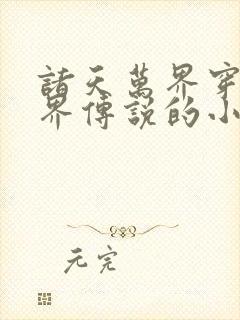 諸天萬界穿
界傳說的小
元完